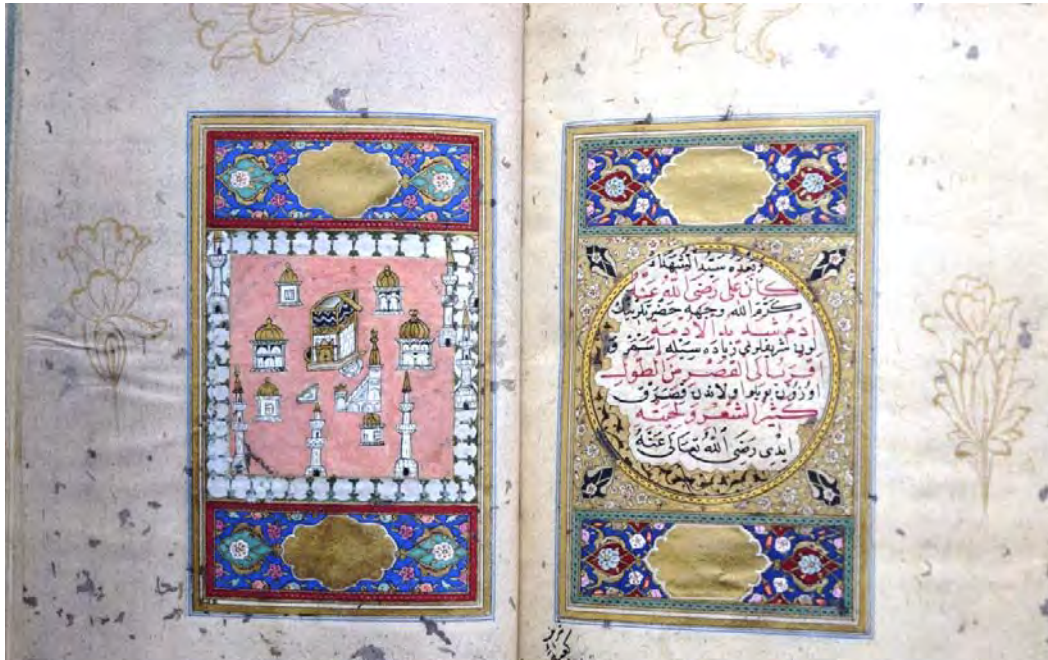 وبعده سيد الشهداء
كان علي رضي الله عنه
كرم الله وجهه حضرتلرينك
ادم شديد الادمة
لون شريفلري زياده سيله اسمر
اقرب الى القصر من الطول
اوزون بويلو اولاندن قصه رق
كثير الشعر ولحيته
ايدي رضي الله تعالى عنه